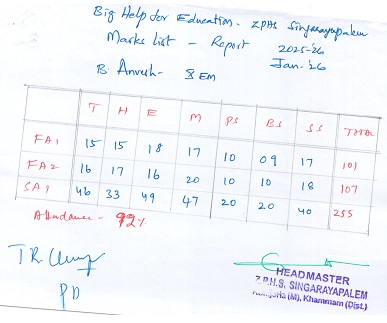 Big Help for Education. ZPHS Singarayapalem
Marks list - Report 2025-26
Jan-26
B. Anvesh- X EM
T H E M PS BS SS TOTAL
FA1 15 15 18 17 10 09 17 101
FA2 16 17 16 20 10 10 18 107
SA1 46 33 49 47 20 20 40 255
Attendance - 92%
PD
HEADMASTER
Z.P.H.S. SINGARAYAPALEM
(M), Khammam (Dist.)